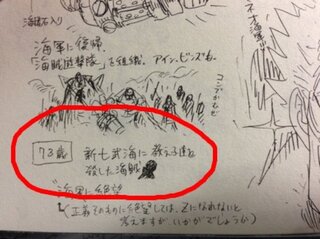 海軍に復帰。
「海賊遊撃隊」を組織。アイン、ビンズも。
73歳
新七武海に教え子達を
殺した海賊
海軍に絶望
(正義そのものに絶望しては、Zになれないと
考えますが、いかがでしょうか)